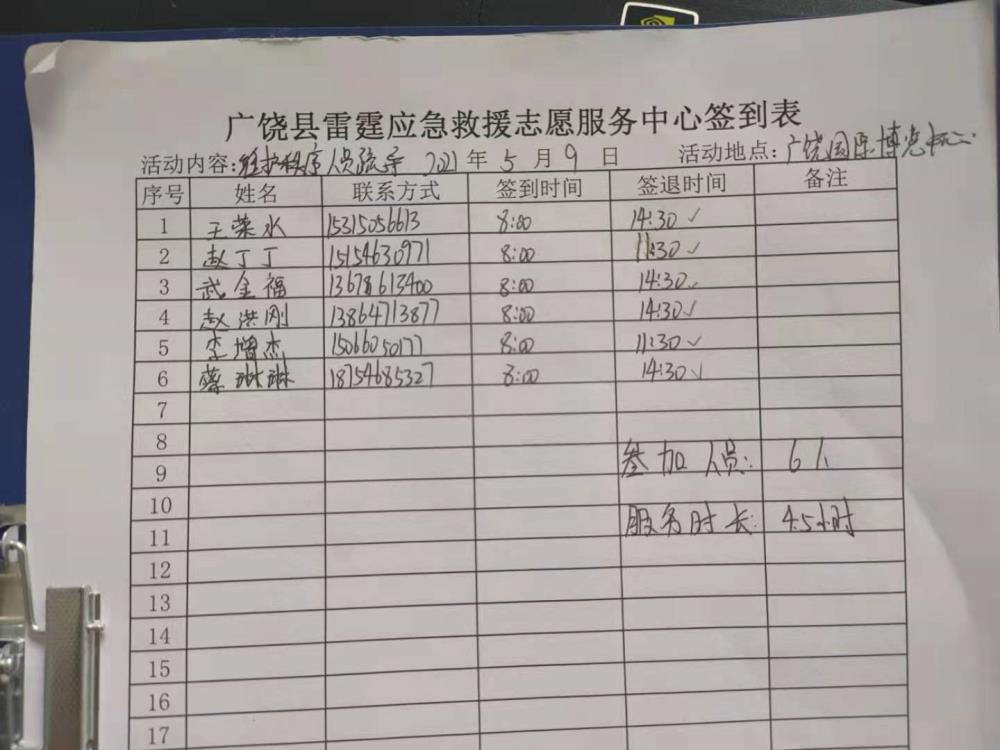 广饶县雷霆应急救援志愿服务中心签到表
活动内容:维护秩序人员疏导 2021年5月9日 活动地点:广饶国际博览中心
序号 姓名 联系方式 签到时间 签退时间 备注
1 王荣水 15315056613 8:00 14:30 ✓
2 赵丁丁 15154630971 8:00 11:30 ✓
3 武金福 13678613400 8:00 14:30 ✓
4 赵洪刚 13864713877 8:00 14:30 ✓
5 李增杰 15066050177 8:00 11:30 ✓
6 蔡琳琳 18754685327 8:00 14:30 ✓
7
8
9 参加人员: 6人
10
11 服务时长: 4.5小时
12
13
14
15
16
17